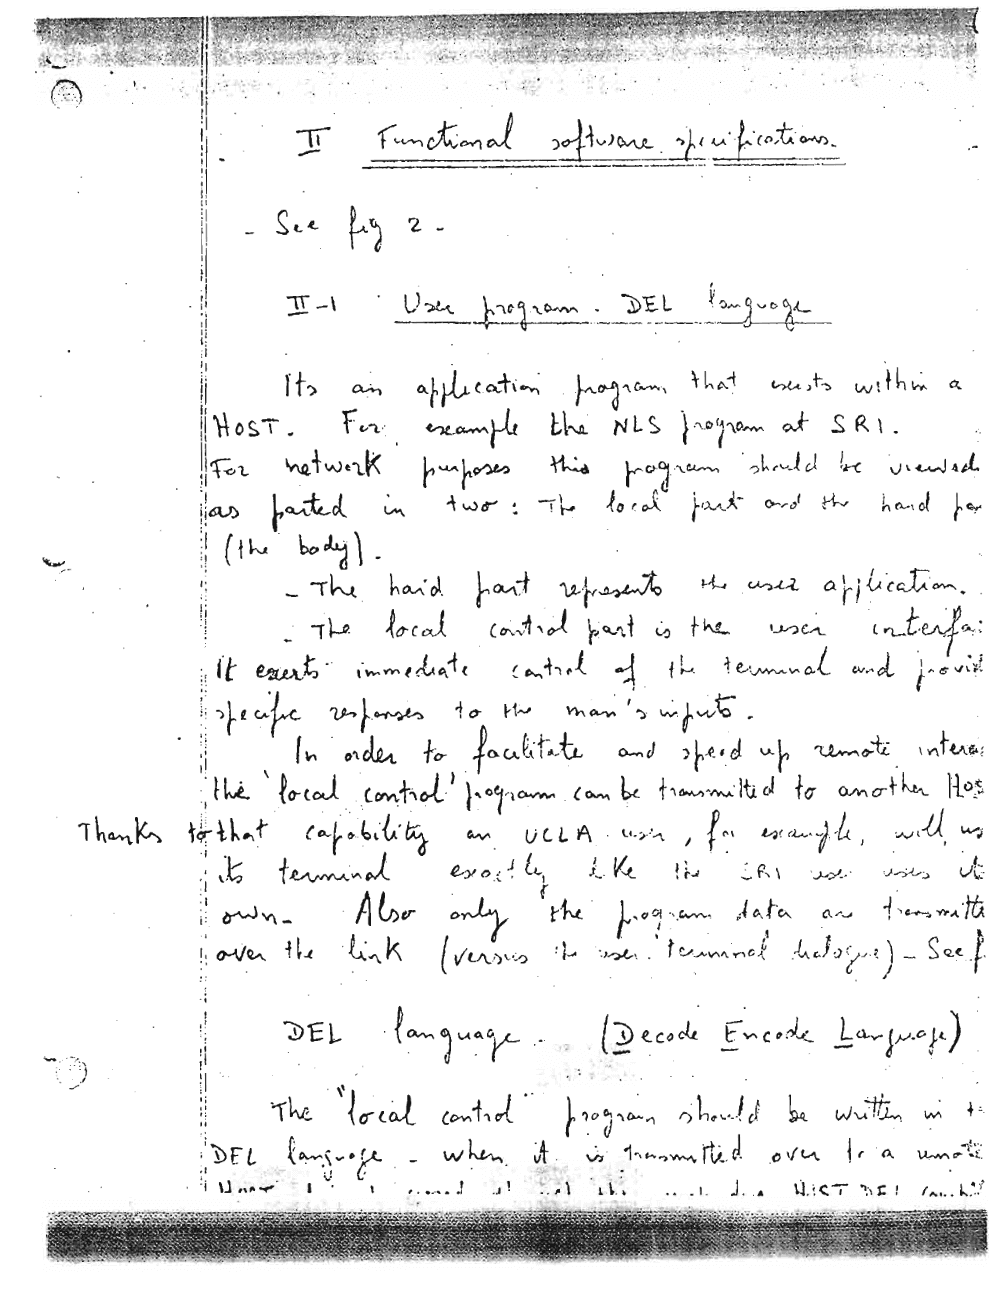 II Functional software specifications.
- See fig 2 -
II-1 User program. DEL language
Its an application program that exists within a
HOST. For example the NLS program at SRI.
For network purposes this program should be viewed
as parted in two: The local part and the hard
(the body).
- The hard part represents the user application.
- The local control part is the user interfa
It exerts immediate control of the terminal and provid
specific responses to the man's inputs.
In order to facilitate and speed up remote intera
the 'local control' program can be transmitted to another Hos
Thanks to that capability an UCLA user, for example, will us
its terminal exactly like the SRI user uses it
own - Also only the program data are transmitte
over the link (versus the user 'terminal' dialogue) - See f
DEL language. (Decode Encode Language)
The "local control" program should be written in t
DEL language - when it is transmitted over to a remote
HOST DEL